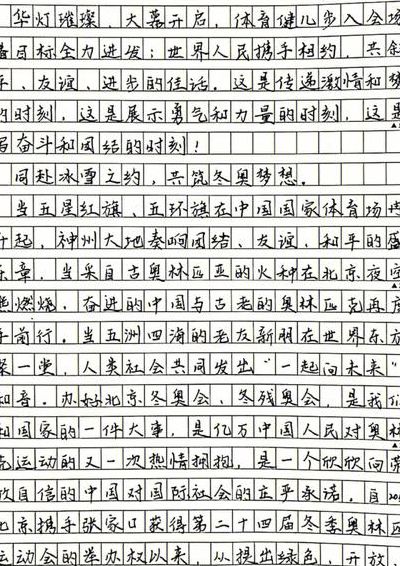 华灯璀璨，大幕开启，体育健儿步入会场
着目标全力进发；世界人民携手相约，共叙
平、友谊、进步的佳话。这是传递激情和梦
的时刻，这是展示勇气和力量的时刻，这是
写奋斗和团结的时刻！
同赴冰雪之约，共筑冬奥梦想。
当五星红旗、五环旗在中国国家体育场内
升起，神州大地奏响团结、友谊、和平的盛
乐章，当采自古奥林匹亚的火种在北京夜空
熊燃烧，奋进的中国与古老的奥林匹克再度
手前行。当五洲四海的老友新朋在世界东方
聚一堂，人类社会共同发出“一起向未来”
和音。办好北京冬奥会、冬残奥会，是我们
和国家的一件大事，是亿万中国人民对奥林
克运动的又一次热情拥抱，是一个欣欣向荣
放自信的中国对国际社会的庄严承诺。自20
北京携手张家口获得第二十四届冬季奥林匹
运动会的举办权以来，从提出绿色、开放、